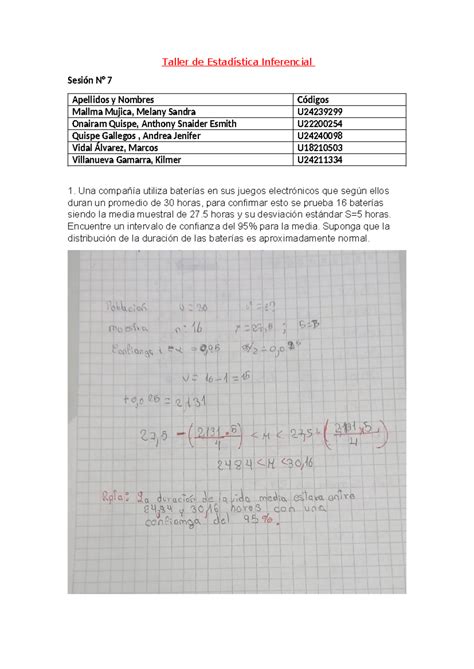 Taller de Estadística Inferencial
Sesión N° 7
Apellidos y Nombres Códigos
Mallma Mujica, Melany Sandra U24239299
Onairam Quispe, Anthony Snaider Esmith U22200254
Quispe Gallegos , Andrea Jenifer U24240098
Vidal Álvarez, Marcos U18210503
Villanueva Gamarra, Kilmer U24211334
1. Una compañía utiliza baterías en sus juegos electrónicos que según ellos
duran un promedio de 30 horas, para confirmar esto se prueba 16 baterías
siendo la media muestral de 27.5 horas y su desviación estándar S=5 horas.
Encuentre un intervalo de confianza del 95% para la media. Suponga que la
distribución de la duración de las baterías es aproximadamente normal.
Población
muestra n=16
0,95
V = 16-1=15
t0,025 = 2,131
27,5 - (2131 . 5 / 4) < M < 27,5 + (2131 . 5 / 4)
2484 < M < 30,16
Rpta: La duración de la vida media estara entre
y 30,16 horas con una
confianza del 95%.